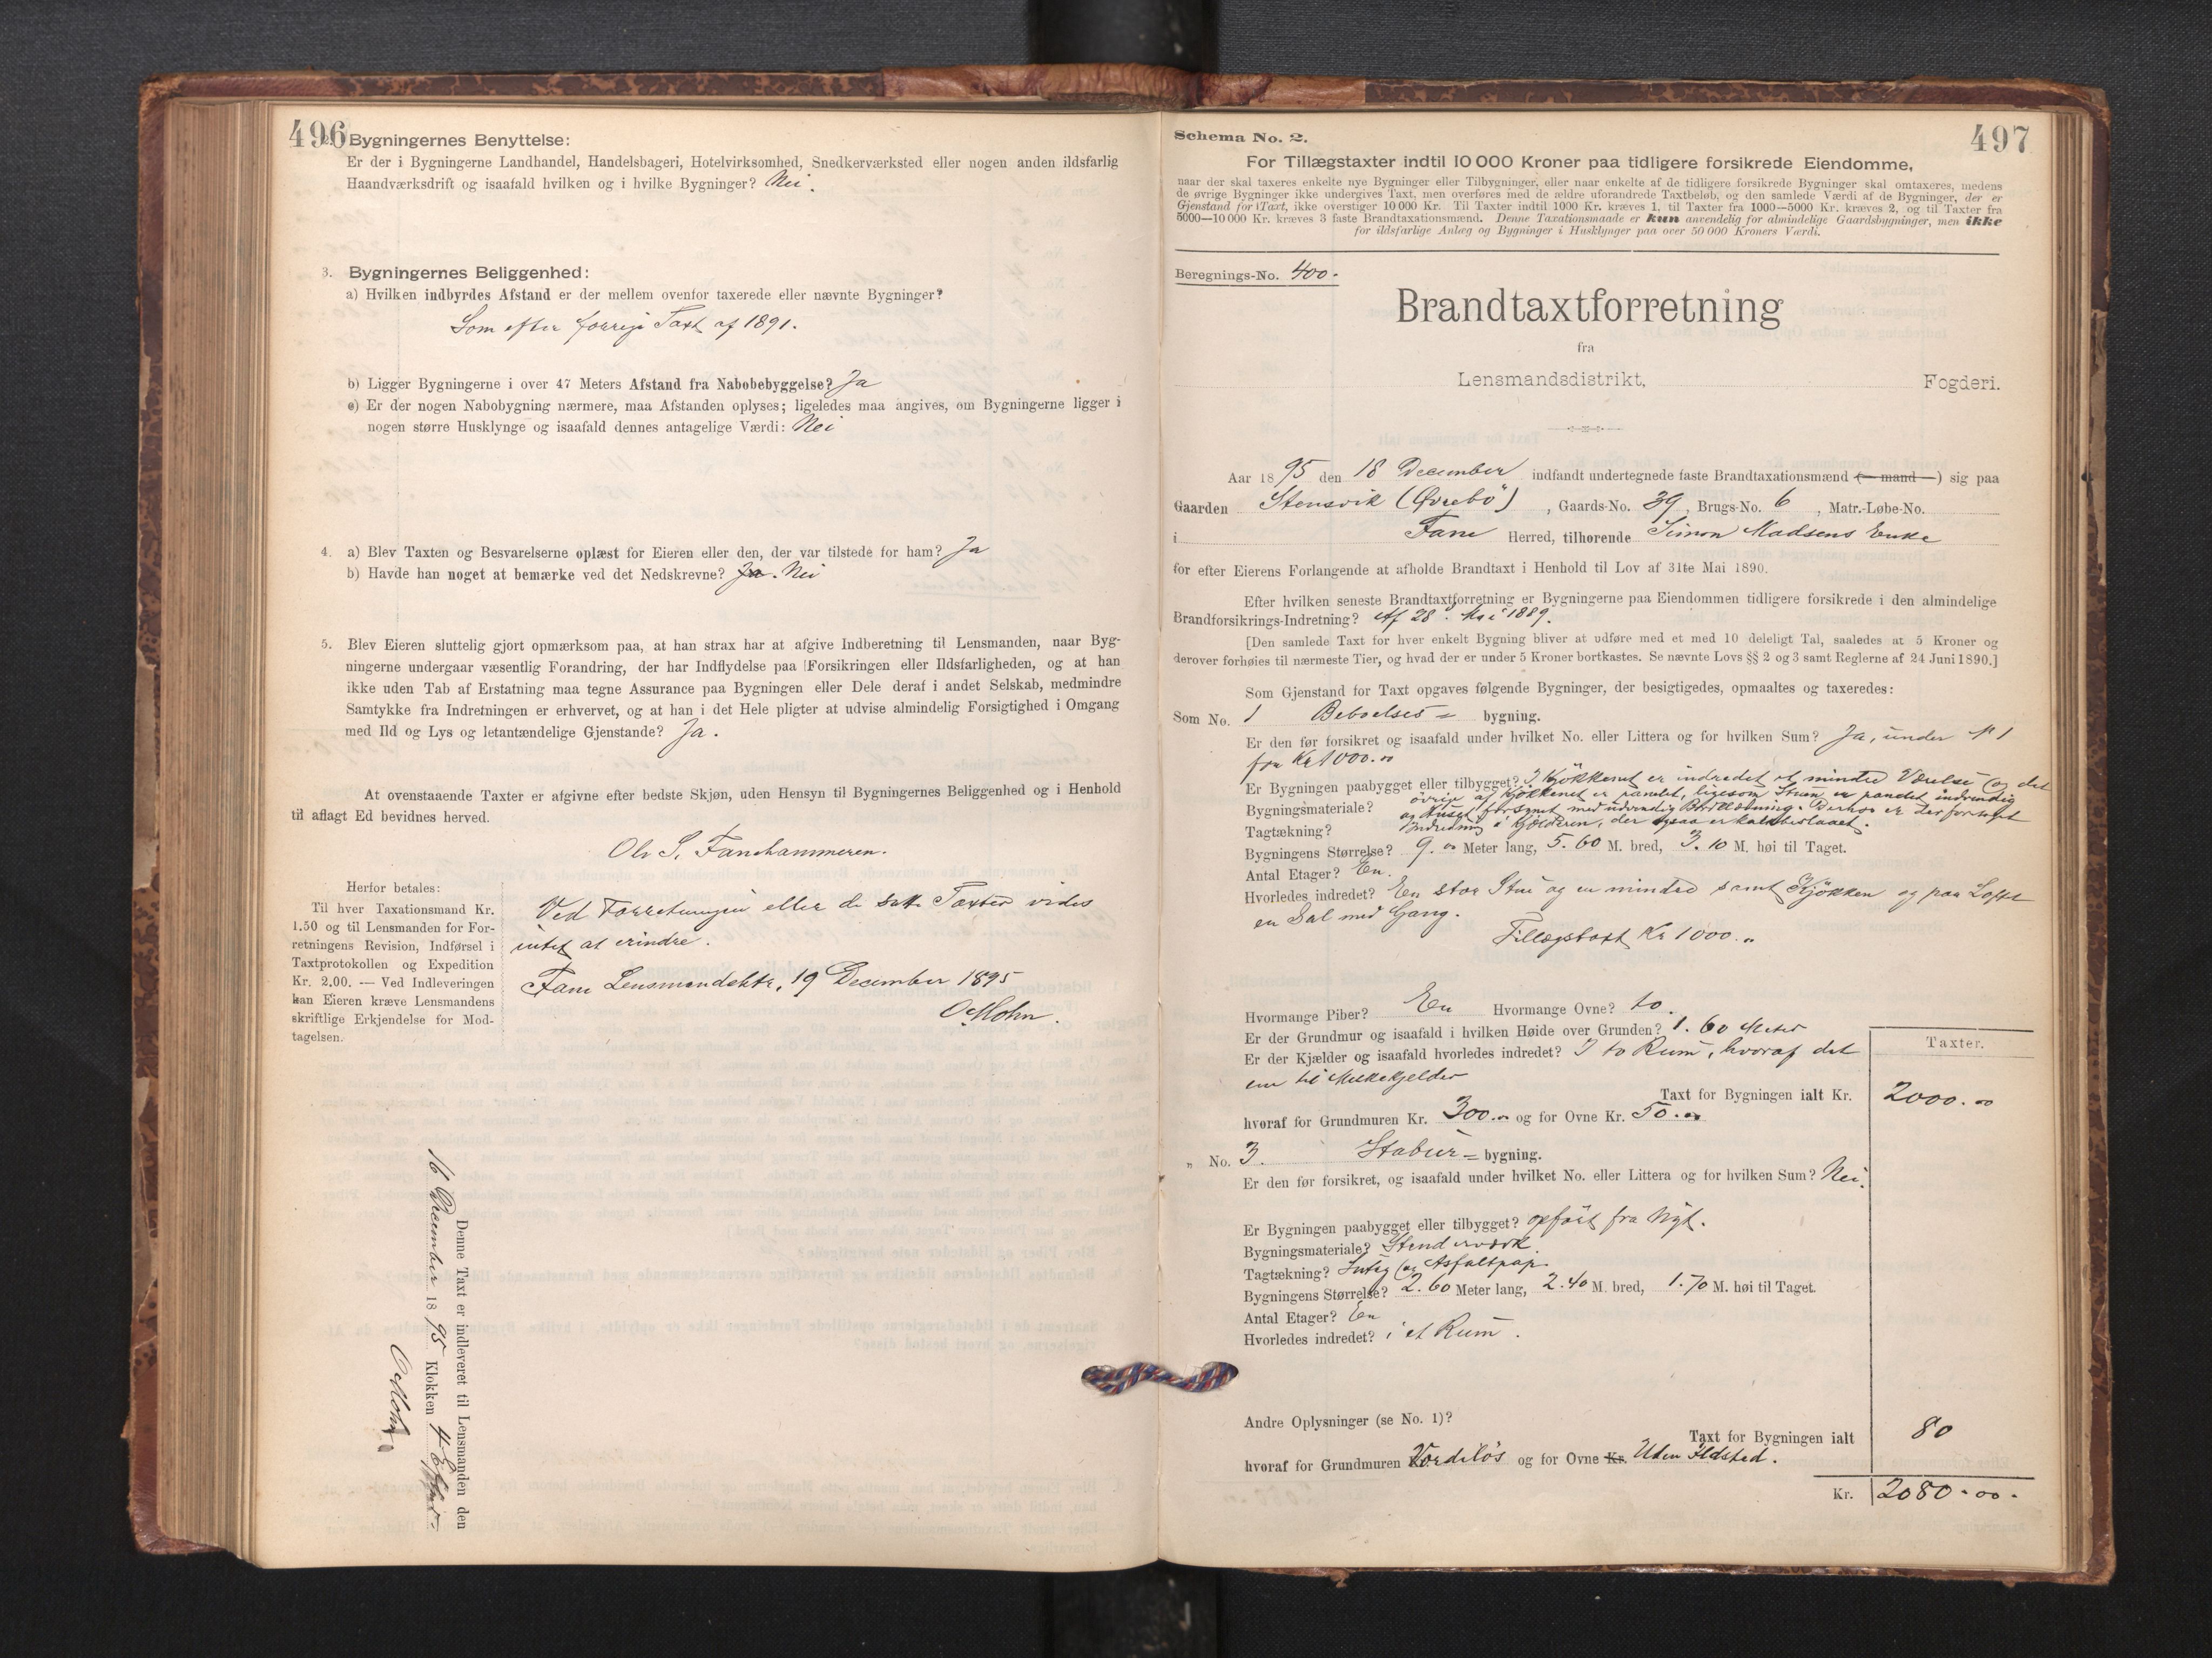 496
2. Bygningernes Benyttelse:
Er der i Bygningerne Landhandel, Handelsbageri, Hotelvirksomhed, Snedkerværksted eller nogen anden ildsfarlig
Haandværksdrift og isaafald hvilken og i hvilke Bygninger? Nei.
3. Bygningernes Beliggenhed:
a) Hvilken indbyrdes Afstand er der mellem ovenfor taxerede eller nævnte Bygninger?
Som efter forrige Taxt af 1891.
b) Ligger Bygningerne i over 47 Meters Afstand fra Nabobebyggelse? Ja
c) Er der nogen Nabobygning nærmere, maa Afstanden oplyses; ligeledes maa angives, om Bygningerne ligger i
nogen større Husklynge og isaafald dennes antagelige Værdi: Nei
4. a) Blev Taxten og Besvarelserne oplæst for Eieren eller den, der var tilstede for ham? Ja
b) Havde han noget at bemærke ved det Nedskrevne? Ja. Nei
5. Blev Eieren sluttelig gjort opmærksom paa, at han strax har at afgive Indberetning til Lensmanden, naar Byg-
ningerne undergaar væsentlig Forandring, der har Indflydelse paa Forsikringen eller Ildsfarligheden, og at han
ikke uden Tab af Erstatning maa tegne Assurance paa Bygningen eller Dele deraf i andet Selskab, medmindre
Samtykke fra Indretningen er erhvervet, og at han i det Hele pligter at udvise almindelig Forsigtighed i Omgang
med Ild og Lys og letantændelige Gjenstande? Ja.
At ovenstaaende Taxter er afgivne efter bedste Skjøn, uden Hensyn til Bygningernes Beliggenhed og i Henhold
til aflagt Ed bevidnes herved.
Ole S. Fanehammeren.
Herfor betales:
Til hver Taxationsmand Kr.
1.50 og til Lensmanden for For-
retningens Revision, Indførsel i
Taxtprotokollen og Expedition
Kr. 2.00. — Ved Indleveringen
kan Eieren kræve Lensmandens
skriftlige Erkjendelse for Mod-
tagelsen.
Ved Forretningen eller de satte Taxter vides
intet at erindre.
Fane Lensmandsktr. 19 December 1895
O Mohn.
Denne Taxt er indleveret til Lensmanden den
16 December 1895 Klokken 4 Efterm.
O Mohn
497
Schema No. 2.
For Tillægstaxter indtil 10 000 Kroner paa tidligere forsikrede Eiendomme,
naar der skal taxeres enkelte nye Bygninger eller Tilbygninger, eller naar enkelte af de tidligere forsikrede Bygninger skal omtaxeres, medens
de øvrige Bygninger ikke undergives Taxt, men overføres med de ældre uforandrede Taxtbeløb, og den samlede Værdi af de Bygninger, der er
Gjenstand for Taxt, ikke overstiger 10 000 Kr. Til Taxter indtil 1000 Kr. kræves 1, til Taxter fra 1000—5000 Kr. kræves 2, og til Taxter fra
5000—10 000 Kr. kræves 3 faste Brandtaxationsmænd. Denne Taxationsmaade er kun anvendelig for almindelige Gaardsbygninger, men ikke
for ildsfarlige Anlæg og Bygninger i Husklynger paa over 50 000 Kroners Værdi.
Beregnings-No. 400.
Brandtaxtforretning
fra
Lensmandsdistrikt, Fogderi.
Aar 1895 den 18 December indfandt undertegnede faste Brandtaxationsmænd (— mand —) sig paa
Gaarden Stensvik (Øvrebö), Gaards-No. 39, Brugs-No. 6, Matr.-Løbe-No.
i Fane Herred, tilhørende Simon Madsens Enke
for efter Eierens Forlangende at afholde Brandtaxt i Henhold til Lov af 31te Mai 1890.
Efter hvilken seneste Brandtaxtforretning er Bygningerne paa Eiendommen tidligere forsikrede i den almindelige
Brandforsikrings-Indretning? Af 28. Mai 1889.
[Den samlede Taxt for hver enkelt Bygning bliver at udføre med et med 10 deleligt Tal, saaledes at 5 Kroner og
derover forhøies til nærmeste Tier, og hvad der er under 5 Kroner bortkastes. Se nævnte Lovs §§ 2 og 3 samt Reglerne af 24 Juni 1890.]
Som Gjenstand for Taxt opgaves følgende Bygninger, der besigtigedes, opmaaltes og taxeredes:
Som No. 1 Beboelses = bygning.
Er den før forsikret og isaafald under hvilket No. eller Littera og for hvilken Sum? Ja, under № 1
for Kr 1000.00
Er Bygningen paabygget eller tilbygget? I Kjökkenet er indredet et mindre Værelse og det
Bygningsmateriale? övrige af Kjökkenet er panelet, ligesom Stuen er panelet indvendig
Tagtækning? og Huset forsynet med udvendig Bordklædning. Derhos er der foretaget
Indredning i Kjælderen, der ogsaa er kalkbeslaaet.
Bygningens Størrelse? 9.00 Meter lang, 5.60 M. bred, 3.10 M. høi til Taget.
Antal Etager? En.
Hvorledes indredet? En stor Stue og en mindre samt Kjökken og paa Loftet
en Sal med Gang.
Tillægstaxt Kr 1000.„
Hvormange Piber? En Hvormange Ovne? to.
Er der Grundmur og isaafald i hvilken Høide over Grunden? 1.60 Meter
Er der Kjælder og isaafald hvorledes indredet? I to Rum, hvoraf det
ene til Melkekjelder
Taxter.
Taxt for Bygningen ialt Kr. 2000.00
hvoraf for Grundmuren Kr. 300.00 og for Ovne Kr. 50.00
„ No. 3. Stabur = bygning.
Er den før forsikret, og isaafald under hvilket No. eller Littera og for hvilken Sum? Nei.
Er Bygningen paabygget eller tilbygget? opfört fra Nyt.
Bygningsmateriale? Stenderværk.
Tagtækning? Sutag og Asfaltpap.
Bygningens Størrelse? 2.60 Meter lang, 2.40 M. bred, 1.70 M. høi til Taget.
Antal Etager? En
Hvorledes indredet? i et Rum.
Andre Oplysninger (se No. 1)?
Taxt for Bygningen ialt 80
hvoraf for Grundmuren Værdilös og for Ovne Kr. Uden Ildsted.
Kr. 2080.00.